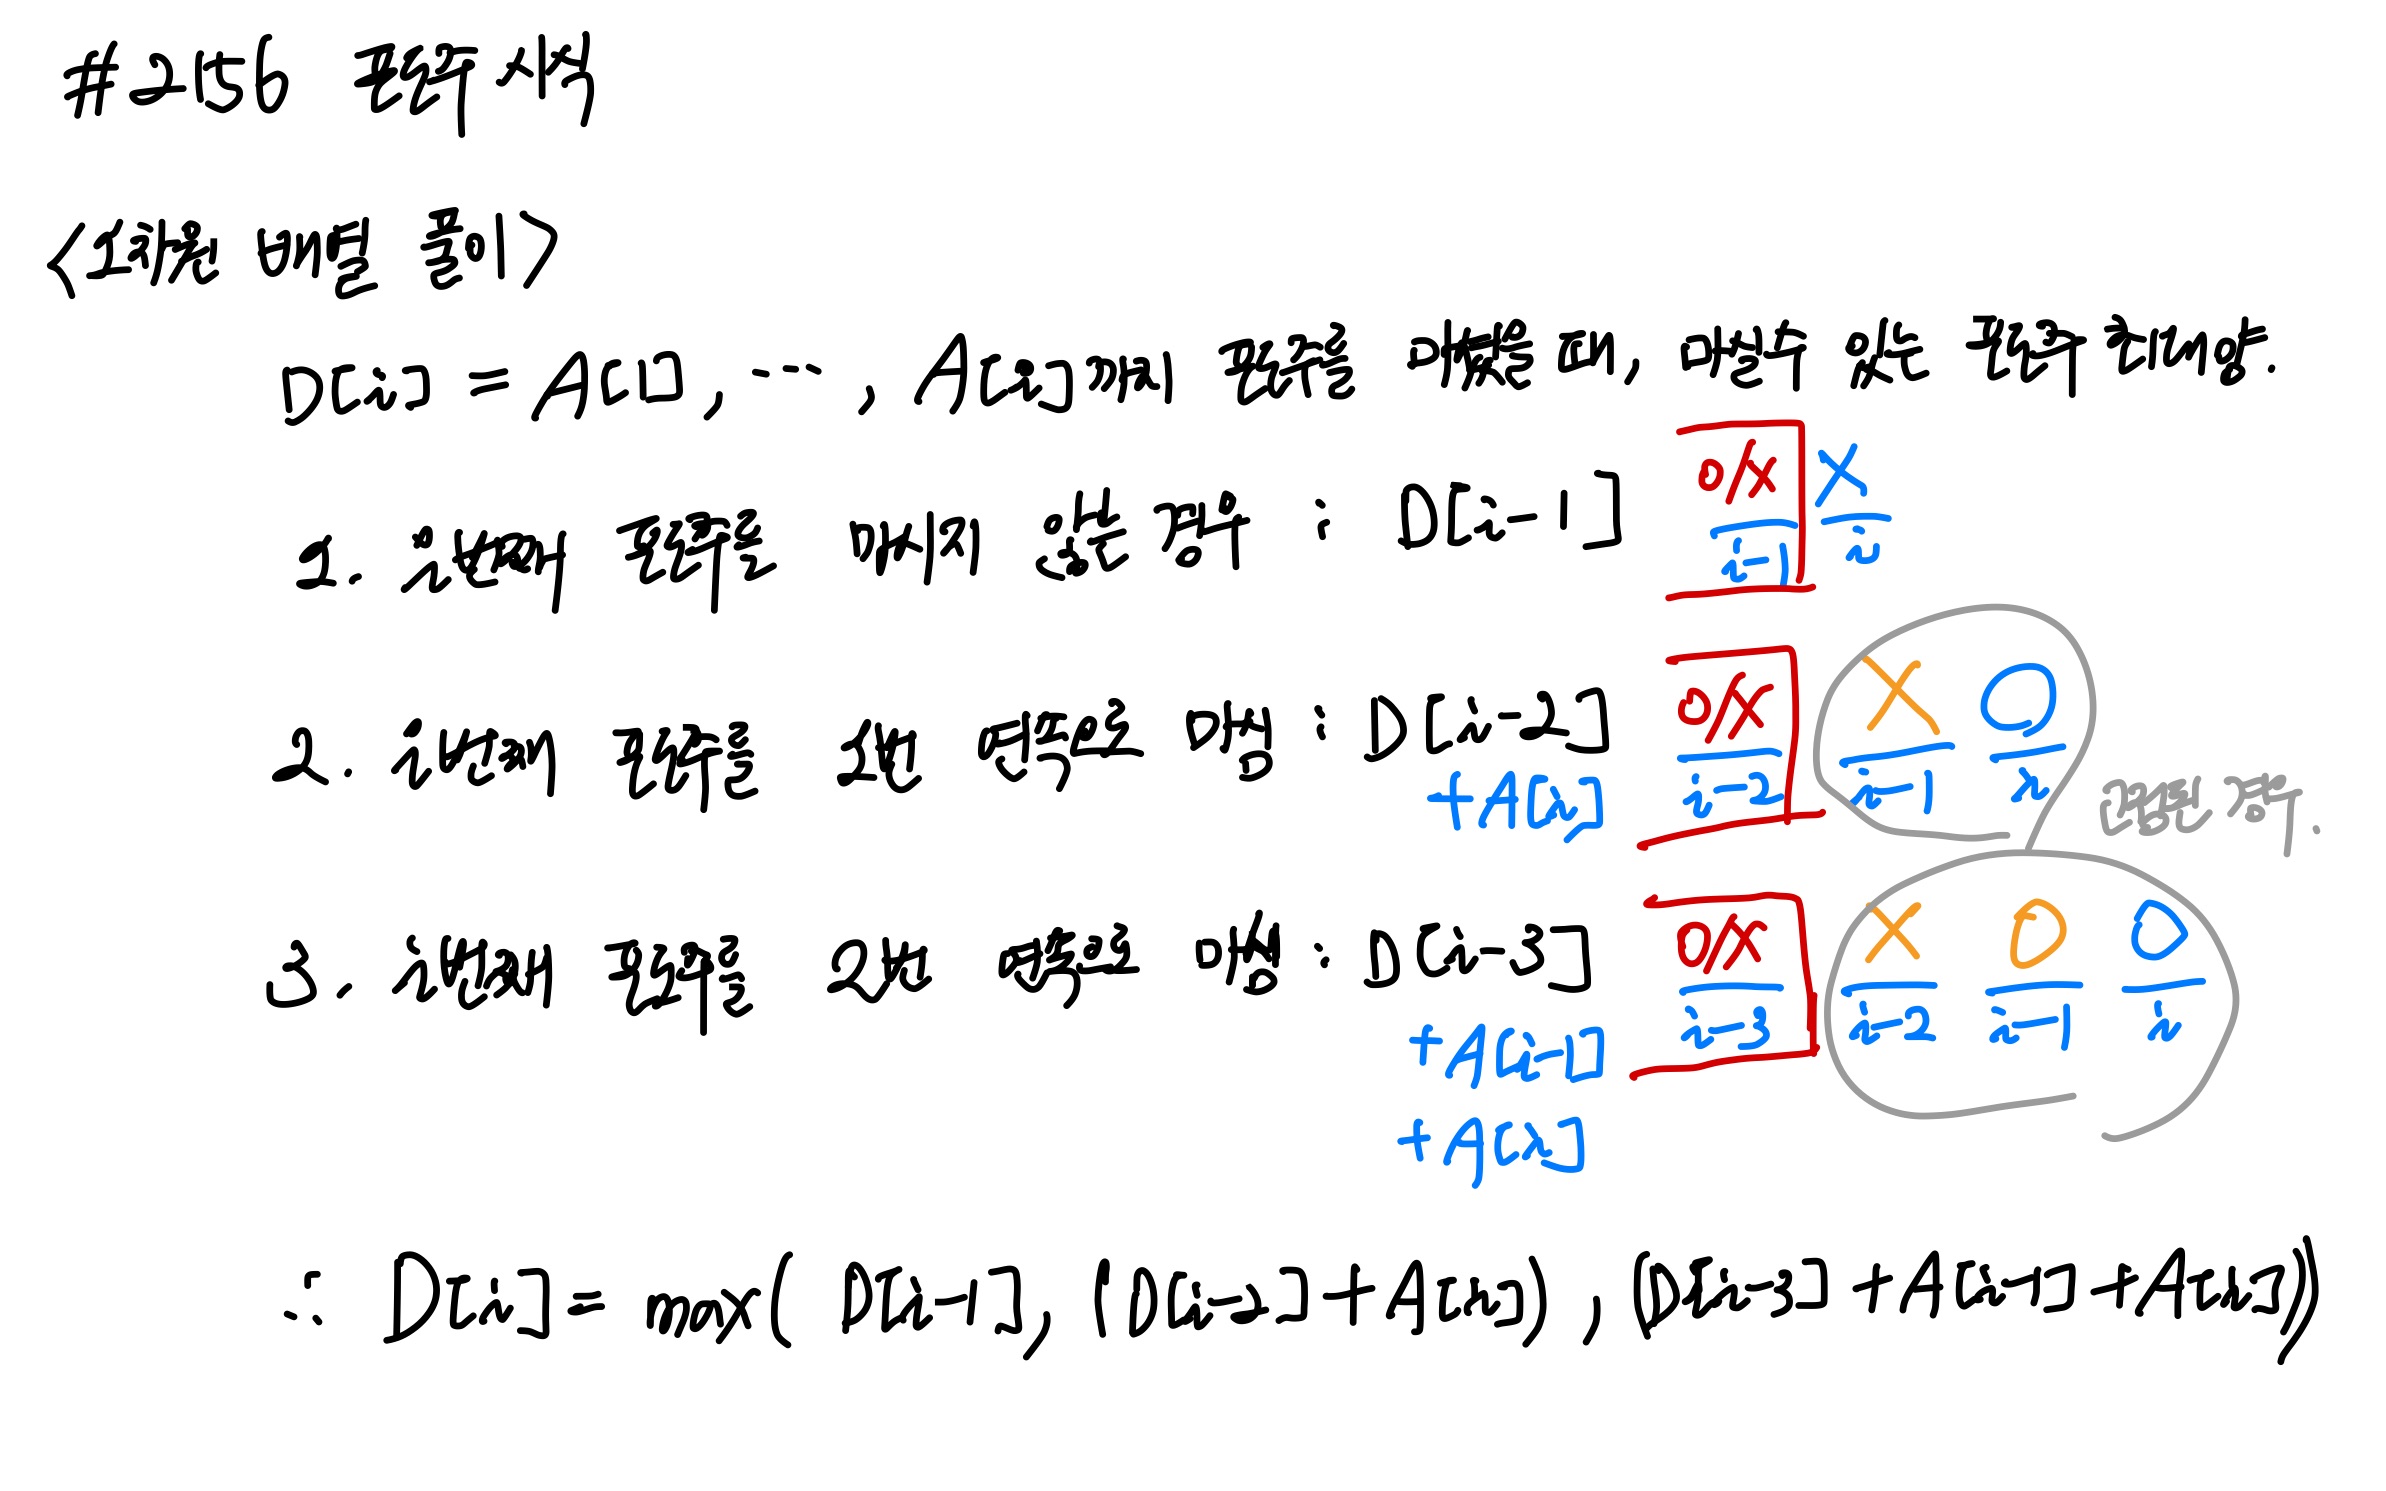 #2156 포도주 시식
<1차원 배열 풀이>
D[i] = A[1], ..., A[i]까지 포도주를 마셨을 때, 마실 수 있는 포도주 최대 양.
1. i번째 포도주를 마시지 않는 경우 : D[i-1]
O/X X
i-1 i
2. i번째 포도주를 1번 연속으로 마심 : D[i-2]
+A[i]
O/X X O
i-2 i-1 i
경우.
3. i번째 포도주를 2번 연속으로 마심 : D[i-3]
+A[i-1]
+A[i]
O/X X O O
i-3 i-2 i-1 i
∴ D[i] = max( D[i-1], (D[i-2]+A[i]), (D[i-3]+A[i-1]+A[i]))